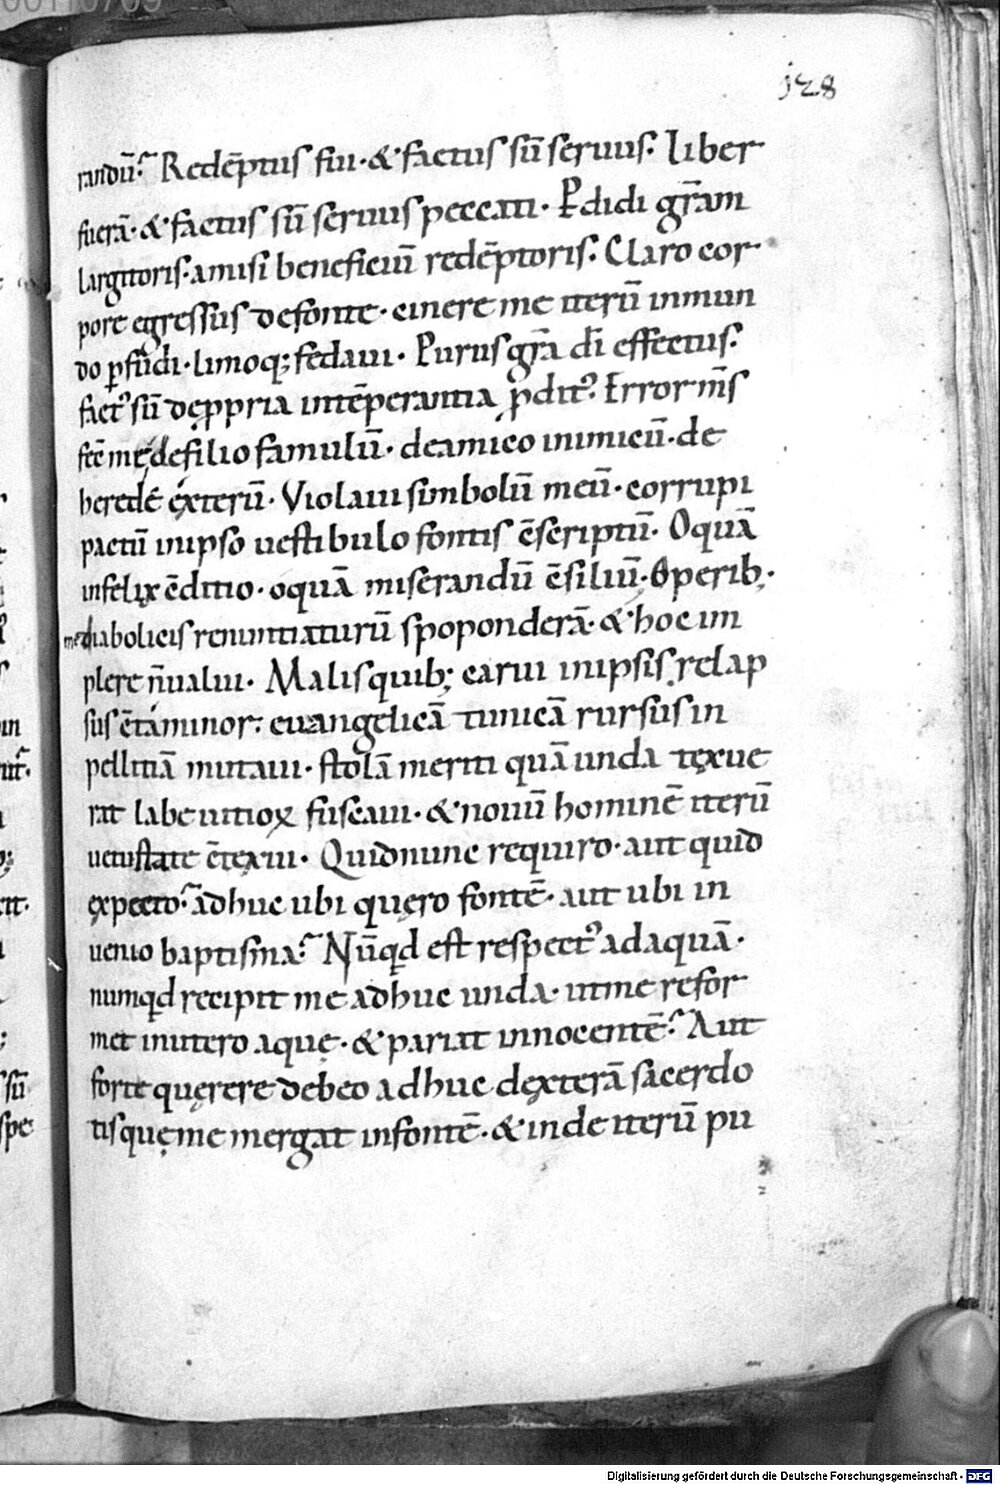 128
randū. Redēptus fiu· & factus sū seruus. Liber
fuerā· & factus sū seruus peccati· Ꝑdidi gr̄am
largitoris· amisi beneficiū redēptoris. Claro cor
pore egressus defonte· cinere me iterū inmun
do ꝑfudi· limoq; fedaui· Purus gr̄a di effectus.
fact᾿ sū dęppria intēperantia ꝓdit᾿. Error m̄s
fec̄ me defilio famulū· deamico inimicū· de
heredé éxterū· Violaui simbolū meū· corrupi
pactū inipso uestibulo fontis c̄scriptū· O quā
infelix c̄ditio· oquā miserandū c̄siliū· Operib;·
diabolicis renuntiaturū spoponderā· & hoc im
plere n̄ualui· Malis quib; carui inipsis relap
sus c̄táminor. euangelicā tunicā rursus in
pelliciā mutaui· stolā meriti quā unda texue
rat labe uitioꝝ fuscaui· & nouū hominē iterū
uetustate c̄texui· Quid nunc requiro· aut quid
expecto. adhuc ubi quęro fontē· aut ubi in
uenio baptisma. Nūqd est respect᾿ adaquā·
numqd recipit me adhuc unda· utme refor
met inutero aquę· & pariat innocentē. Aut
forte quęrere debeo adhuc dęxterā sacerdo
tis quęme mergat infontē· & inde iterū pu
Digitalisierung gefördert durch die Deutsche Forschungsgemeinschaft - DFG